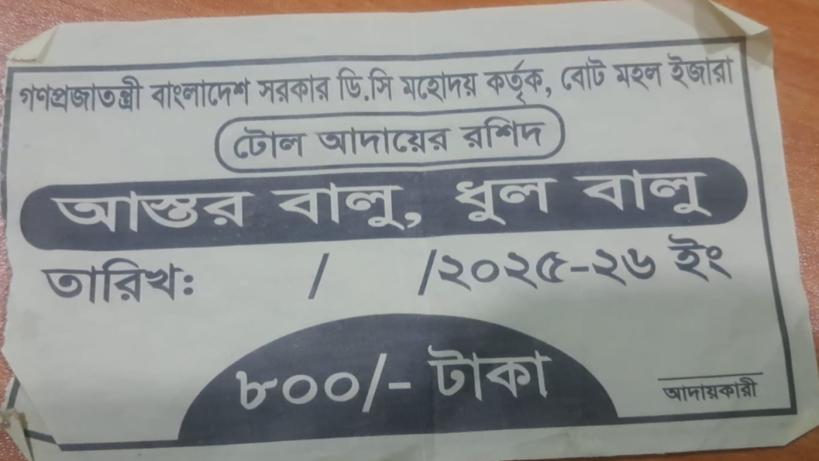 গণপ্রজাতন্ত্রী বাংলাদেশ সরকার ডি.সি মহোদয় কর্তৃক, বোট মহল ইজারা
টোল আদায়ের রশিদ
আস্তর বালু, ধুল বালু
তারিখঃ / /২০২৫-২৬ ইং
৮০০/- টাকা
আদায়কারী